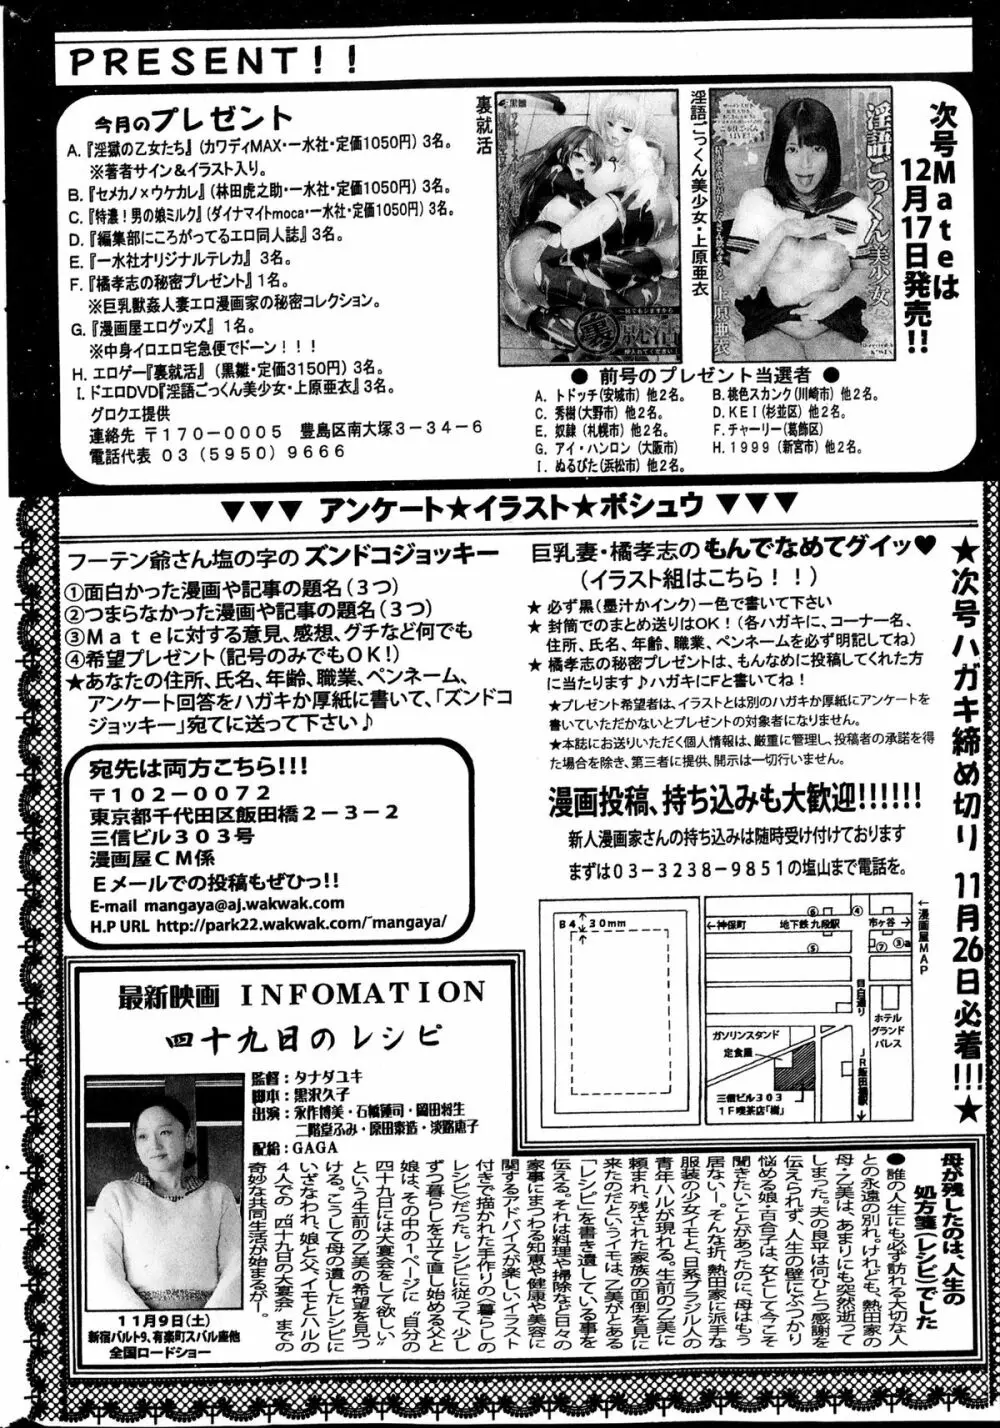 PRESENT!!
今月のプレゼント
A.『淫獄の乙女たち』(カワディMAX・一水社・定価1050円)3名。
※著者サイン＆イラスト入り。
B.『セメカノ×ウケカレ』(林田虎之助・一水社・定価1050円)3名。
C.『特濃！男の娘ミルク』(ダイナマイトmoca・一水社・定価1050円)3名。
D.『編集部にころがってるエロ同人誌』3名。
E.『一水社オリジナルテレカ』3名。
F.『橘孝志の秘密プレゼント』1名。
※巨乳獣姦人妻エロ漫画家の秘密コレクション。
G.『漫画屋エログッズ』1名。
※中身イロエロ宅急便でドーン！！！
H. エロゲー『裏就活』(黒雛・定価3150円)3名。
I. ドエロDVD『淫語ごっくん美少女・上原亜衣』3名。
グロクエ提供
連絡先 〒170-0005 豊島区南大塚3-34-6
電話代表 03(5950)9666
裏就活
淫語ごっくん美少女・上原亜衣
淫語ごっくん美少女
上原亜衣
次号Mateは
12月17日発売!!
● 前号のプレゼント当選者 ●
A. トドッチ(安城市)他2名。
B. 桃色スカンク(川崎市)他2名。
C. 秀樹(大野市)他2名。
D. KEI(杉並区)他2名。
E. 奴隷(札幌市)他2名。
F. チャーリー(葛飾区)
G. アイ・ハンロン(大阪市)
H. 1999(新宮市)他2名。
I. ぬるぴた(浜松市)他2名。
▼▼▼ アンケート★イラスト★ボシュウ ▼▼▼
フーテン爺さん塩の字の ズンドコジョッキー
①面白かった漫画や記事の題名(3つ)
②つまらなかった漫画や記事の題名(3つ)
③Mateに対する意見、感想、グチなど何でも
④希望プレゼント(記号のみでもOK!)
★あなたの住所、氏名、年齢、職業、ペンネーム、
アンケート回答をハガキか厚紙に書いて、「ズンドコ
ジョッキー」宛てに送って下さい♪
宛先は両方こちら!!!
〒102-0072
東京都千代田区飯田橋2-3-2
三信ビル303号
漫画屋CM係
Eメールでの投稿もぜひっ!!
E-mail mangaya@aj.wakwak.com
H.P URL http://park22.wakwak.com/~mangaya/
巨乳妻・橘孝志のもんでなめてグイッ♥
(イラスト組はこちら！！)
★ 必ず黒(墨汁かインク)一色で書いて下さい
★ 封筒でのまとめ送りはOK！(各ハガキに、コーナー名、
住所、氏名、年齢、職業、ペンネームを必ず明記してね)
★ 橘孝志の秘密プレゼントは、もんなめに投稿してくれた方
に当たります♪ハガキにFと書いてね！
★プレゼント希望者は、イラストとは別のハガキか厚紙にアンケートを
書いていただかないとプレゼントの対象者になりません。
★本誌にお送りいただく個人情報は、厳重に管理し、投稿者の承諾を得
た場合を除き、第三者に提供、開示は一切行いません。
漫画投稿、持ち込みも大歓迎!!!!!!
新人漫画家さんの持ち込みは随時受け付けております
まずは03-3238-9851の塩山まで電話を。
★次号ハガキ締め切り 11月26日必着!!!★
B4
30mm
←漫画屋MAP
←神保町
地下鉄 九段駅
市ヶ谷→
⑥
④
⑤
⑦
③a
目白通り
ホテル
グランド
パレス
ガソリンスタンド
定食屋
三信ビル303
1F喫茶店「樹」
JR飯田橋駅
最新映画 INFOMATION
四十九日のレシピ
監督：タナダユキ
脚本：黒沢久子
出演：永作博美・石橋蓮司・岡田将生
二階堂ふみ・原田泰造・淡路恵子
配給：GAGA
11月9日(土)
新宿バルト9、有楽町スバル座他
全国ロードショー
母が残したのは、人生の
処方箋(レシピ)でした
●誰の人生にも必ず訪れる大切な人
との永遠の別れ。けれども、熱田家の
母・乙美は、あまりにも突然逝って
しまった。夫の良平は何ひとつ感謝を
伝えられず、人生の壁にぶつかり
悩める娘・百合子は、女として今こそ
聞きたいことがあったのに、母はもう
居ない―。そんな折、熱田家に派手な
服装の少女イモと、日系ブラジル人の
青年ハルが現れる。生前の乙美に
頼まれ、残された家族の面倒を見に
来たのだというイモは、乙美がとある
「レシピ」を書き遺している事を
伝える。それは料理や掃除など日々の
家事にまつわる知恵や健康や美容に
関するアドバイスが楽しいイラスト
付きで描かれた手作りの《暮らしの
レシピ》だった。レシピに従って、少し
ずつ暮らしを立て直し始める父と
娘は、その中の1ページに〝自分の
四十九日には大宴会をして欲しい〟
という生前の乙美の希望を見つ
ける。こうして母の遺したレシピに
いざなわれ、娘と父、イモとハルの
4人での〝四十九日の大宴会〟までの
奇妙な共同生活が始まるが―。